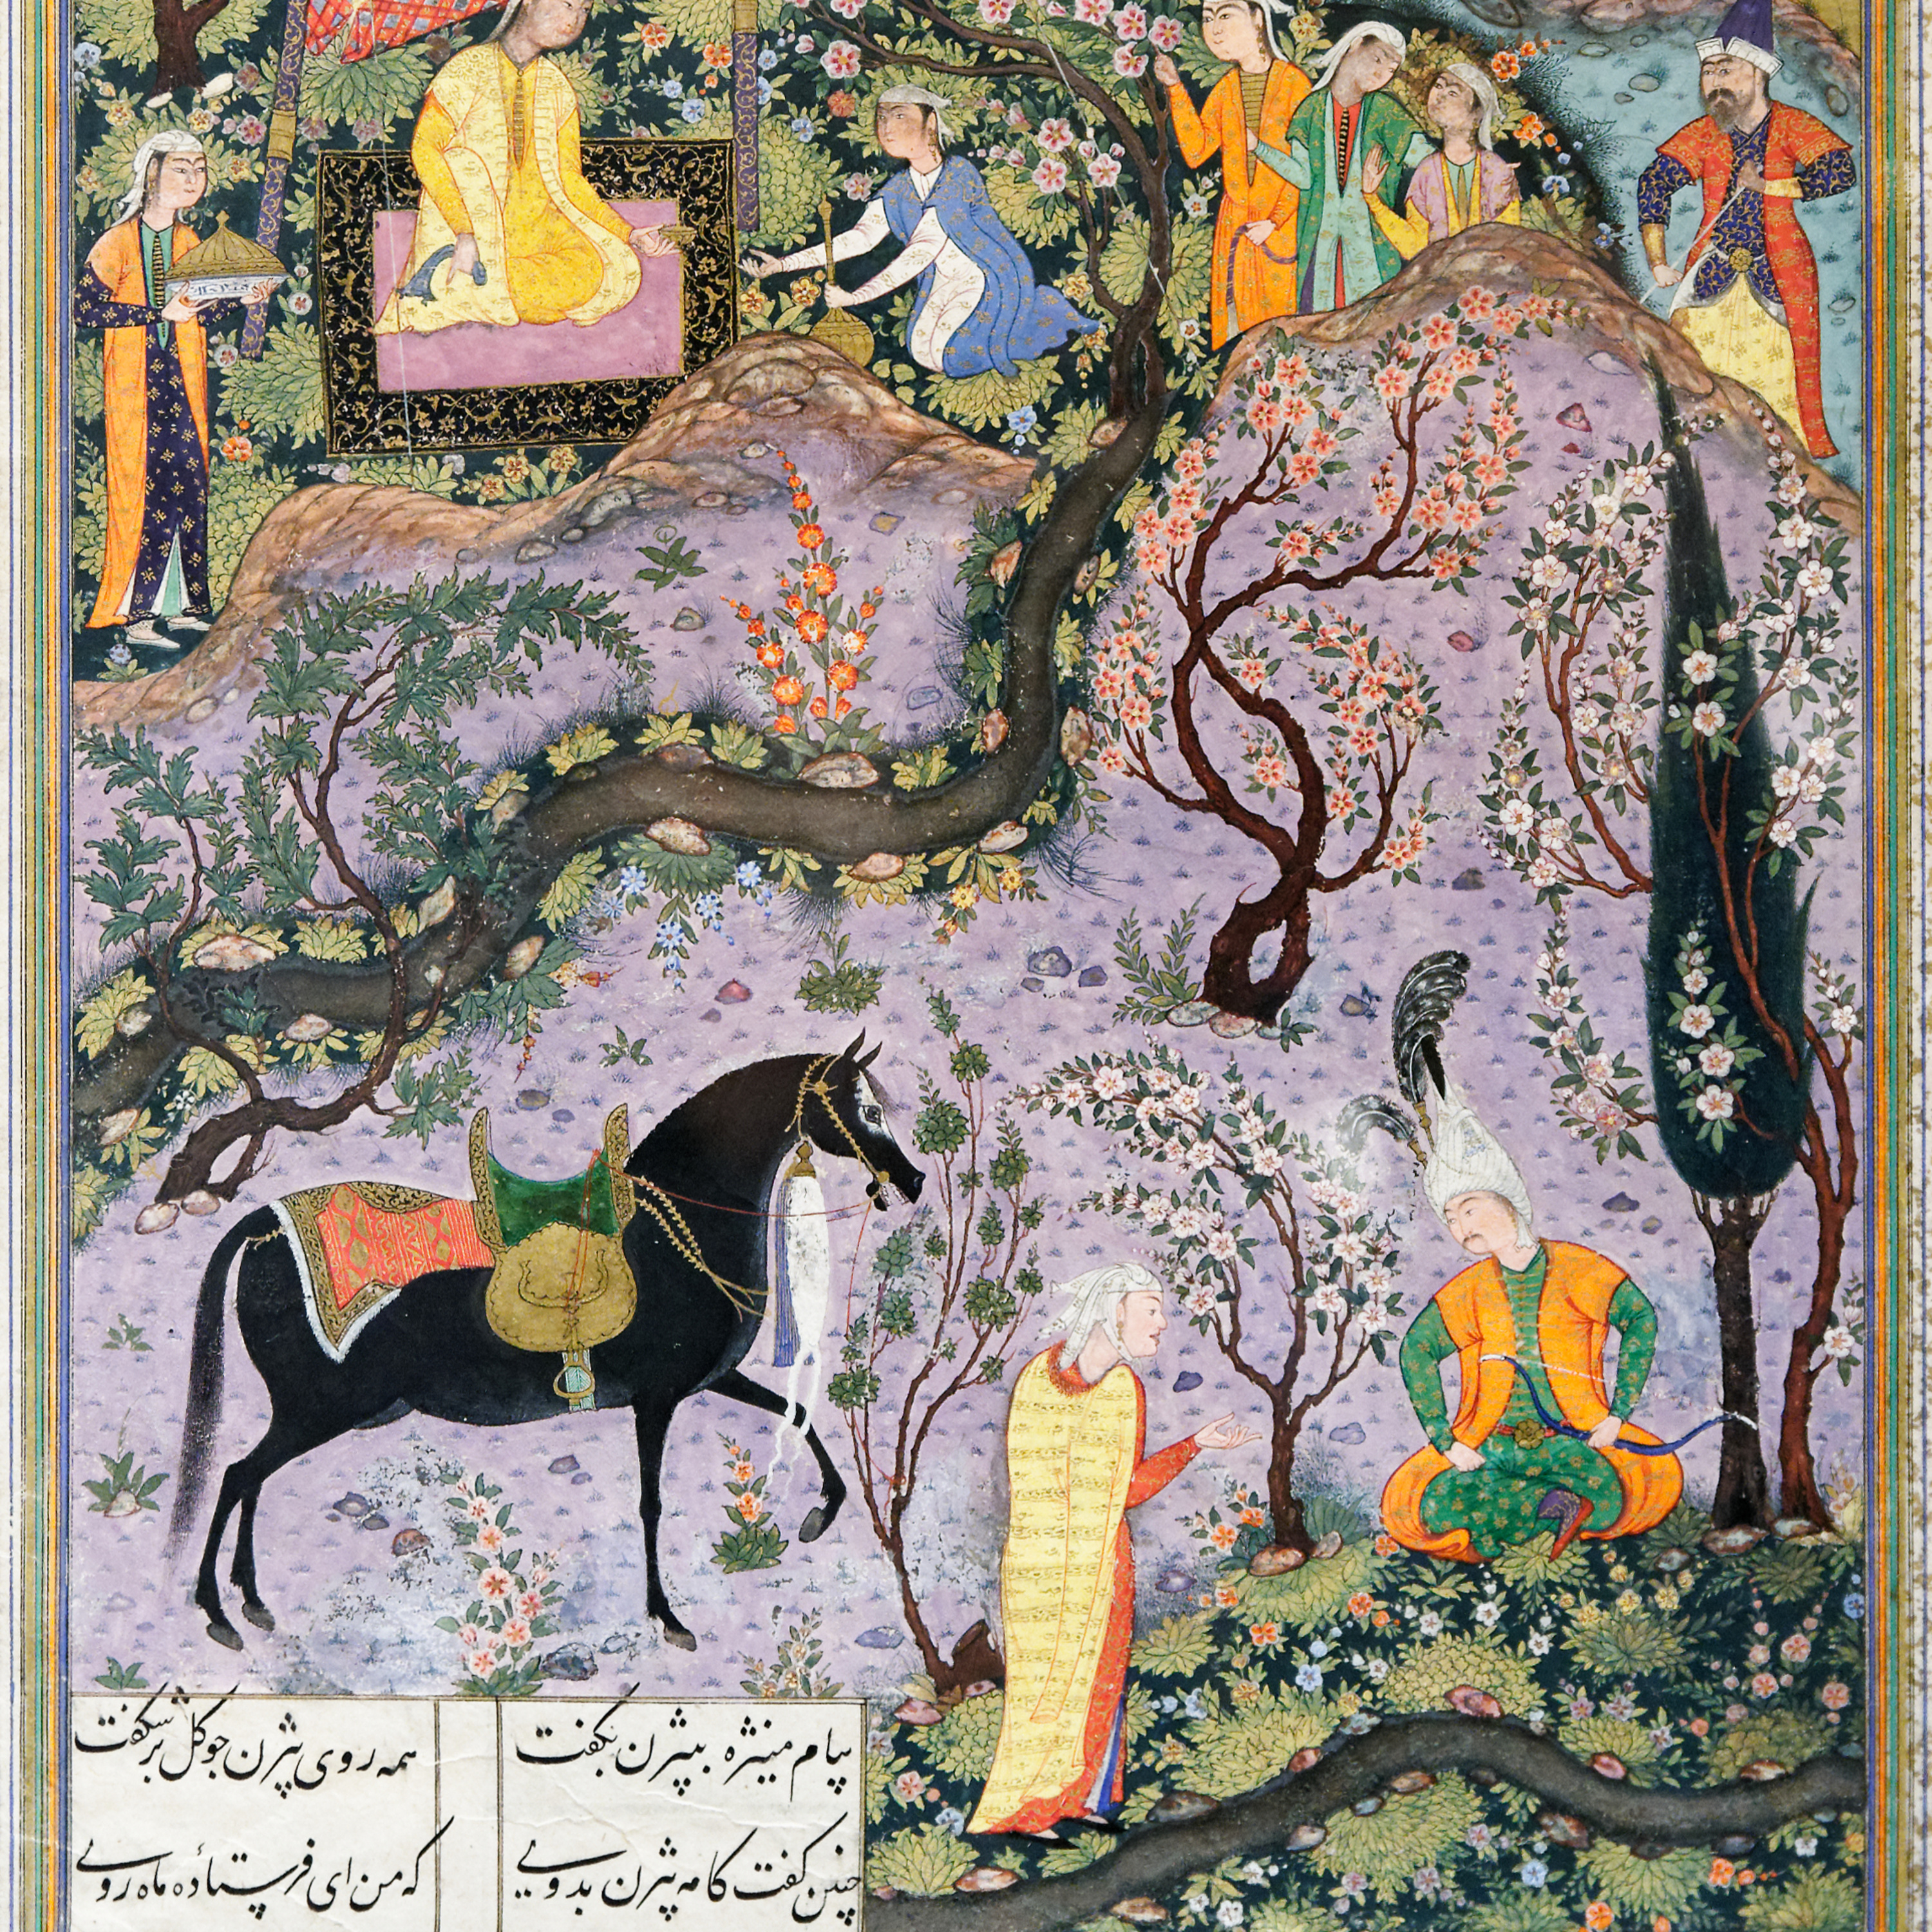 پیام منیژه ببیژن بگفت همه روی بیژن چو گل برشکفت
چنین گفت کامه بیژن بدوی که من ای فرستادهٔ ماه روی